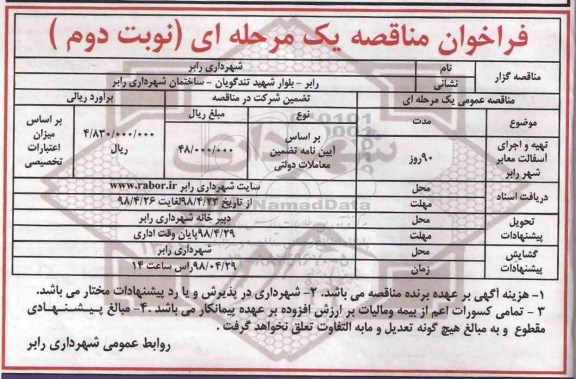 فراخوان مناقصه یک مرحله ای (نوبت دوم )
مناقصه گزار
نام
شهرداری رابر
نشانی
رابر - بلوار شهید تندگویان - ساختمان شهرداری رابر
مناقصه عمومی یک مرحله ای
تضمین شرکت در مناقصه
براورد ریالی
موضوع
مدت
نوع
مبلغ ریال
تهیه و اجرای
آسفالت معابر
شهر رابر
۹۰روز
بر اساس
آیین نامه تضمین
معاملات دولتی
۴۸/۰۰۰/۰۰۰
۴/۸۳۰/۰۰۰/۰۰۰
ریال
بر اساس
میزان
اعتبارات
تخصیصی
دریافت اسناد
محل
سایت شهرداری رابر www.rabor.ir
مهلت
از تاریخ ۹۸/۴/۲۳لغایت ۹۸/۴/۲۶
تحویل
پیشنهادات
محل
دبیر خانه شهرداری رابر
مهلت
۹۸/۴/۲۹پایان وقت اداری
گشایش
پیشنهادات
محل
شهرداری رابر
زمان
۹۸/۰۴/۲۹راس ساعت ۱۴
۱- هزینه آگهی بر عهده برنده مناقصه می باشد. ۲- شهرداری در پذیرش و یا رد پیشنهادات مختار می باشد.
۳ - تمامی کسورات اعم از بیمه ومالیات بر ارزش افزوده بر عهده پیمانکار می باشد .۴- مبالغ پیشنهادی
مقطوع و به مبالغ هیچ گونه تعدیل و مابه التفاوت تعلق نخواهد گرفت .
روابط عمومی شهرداری رابر
NamadData